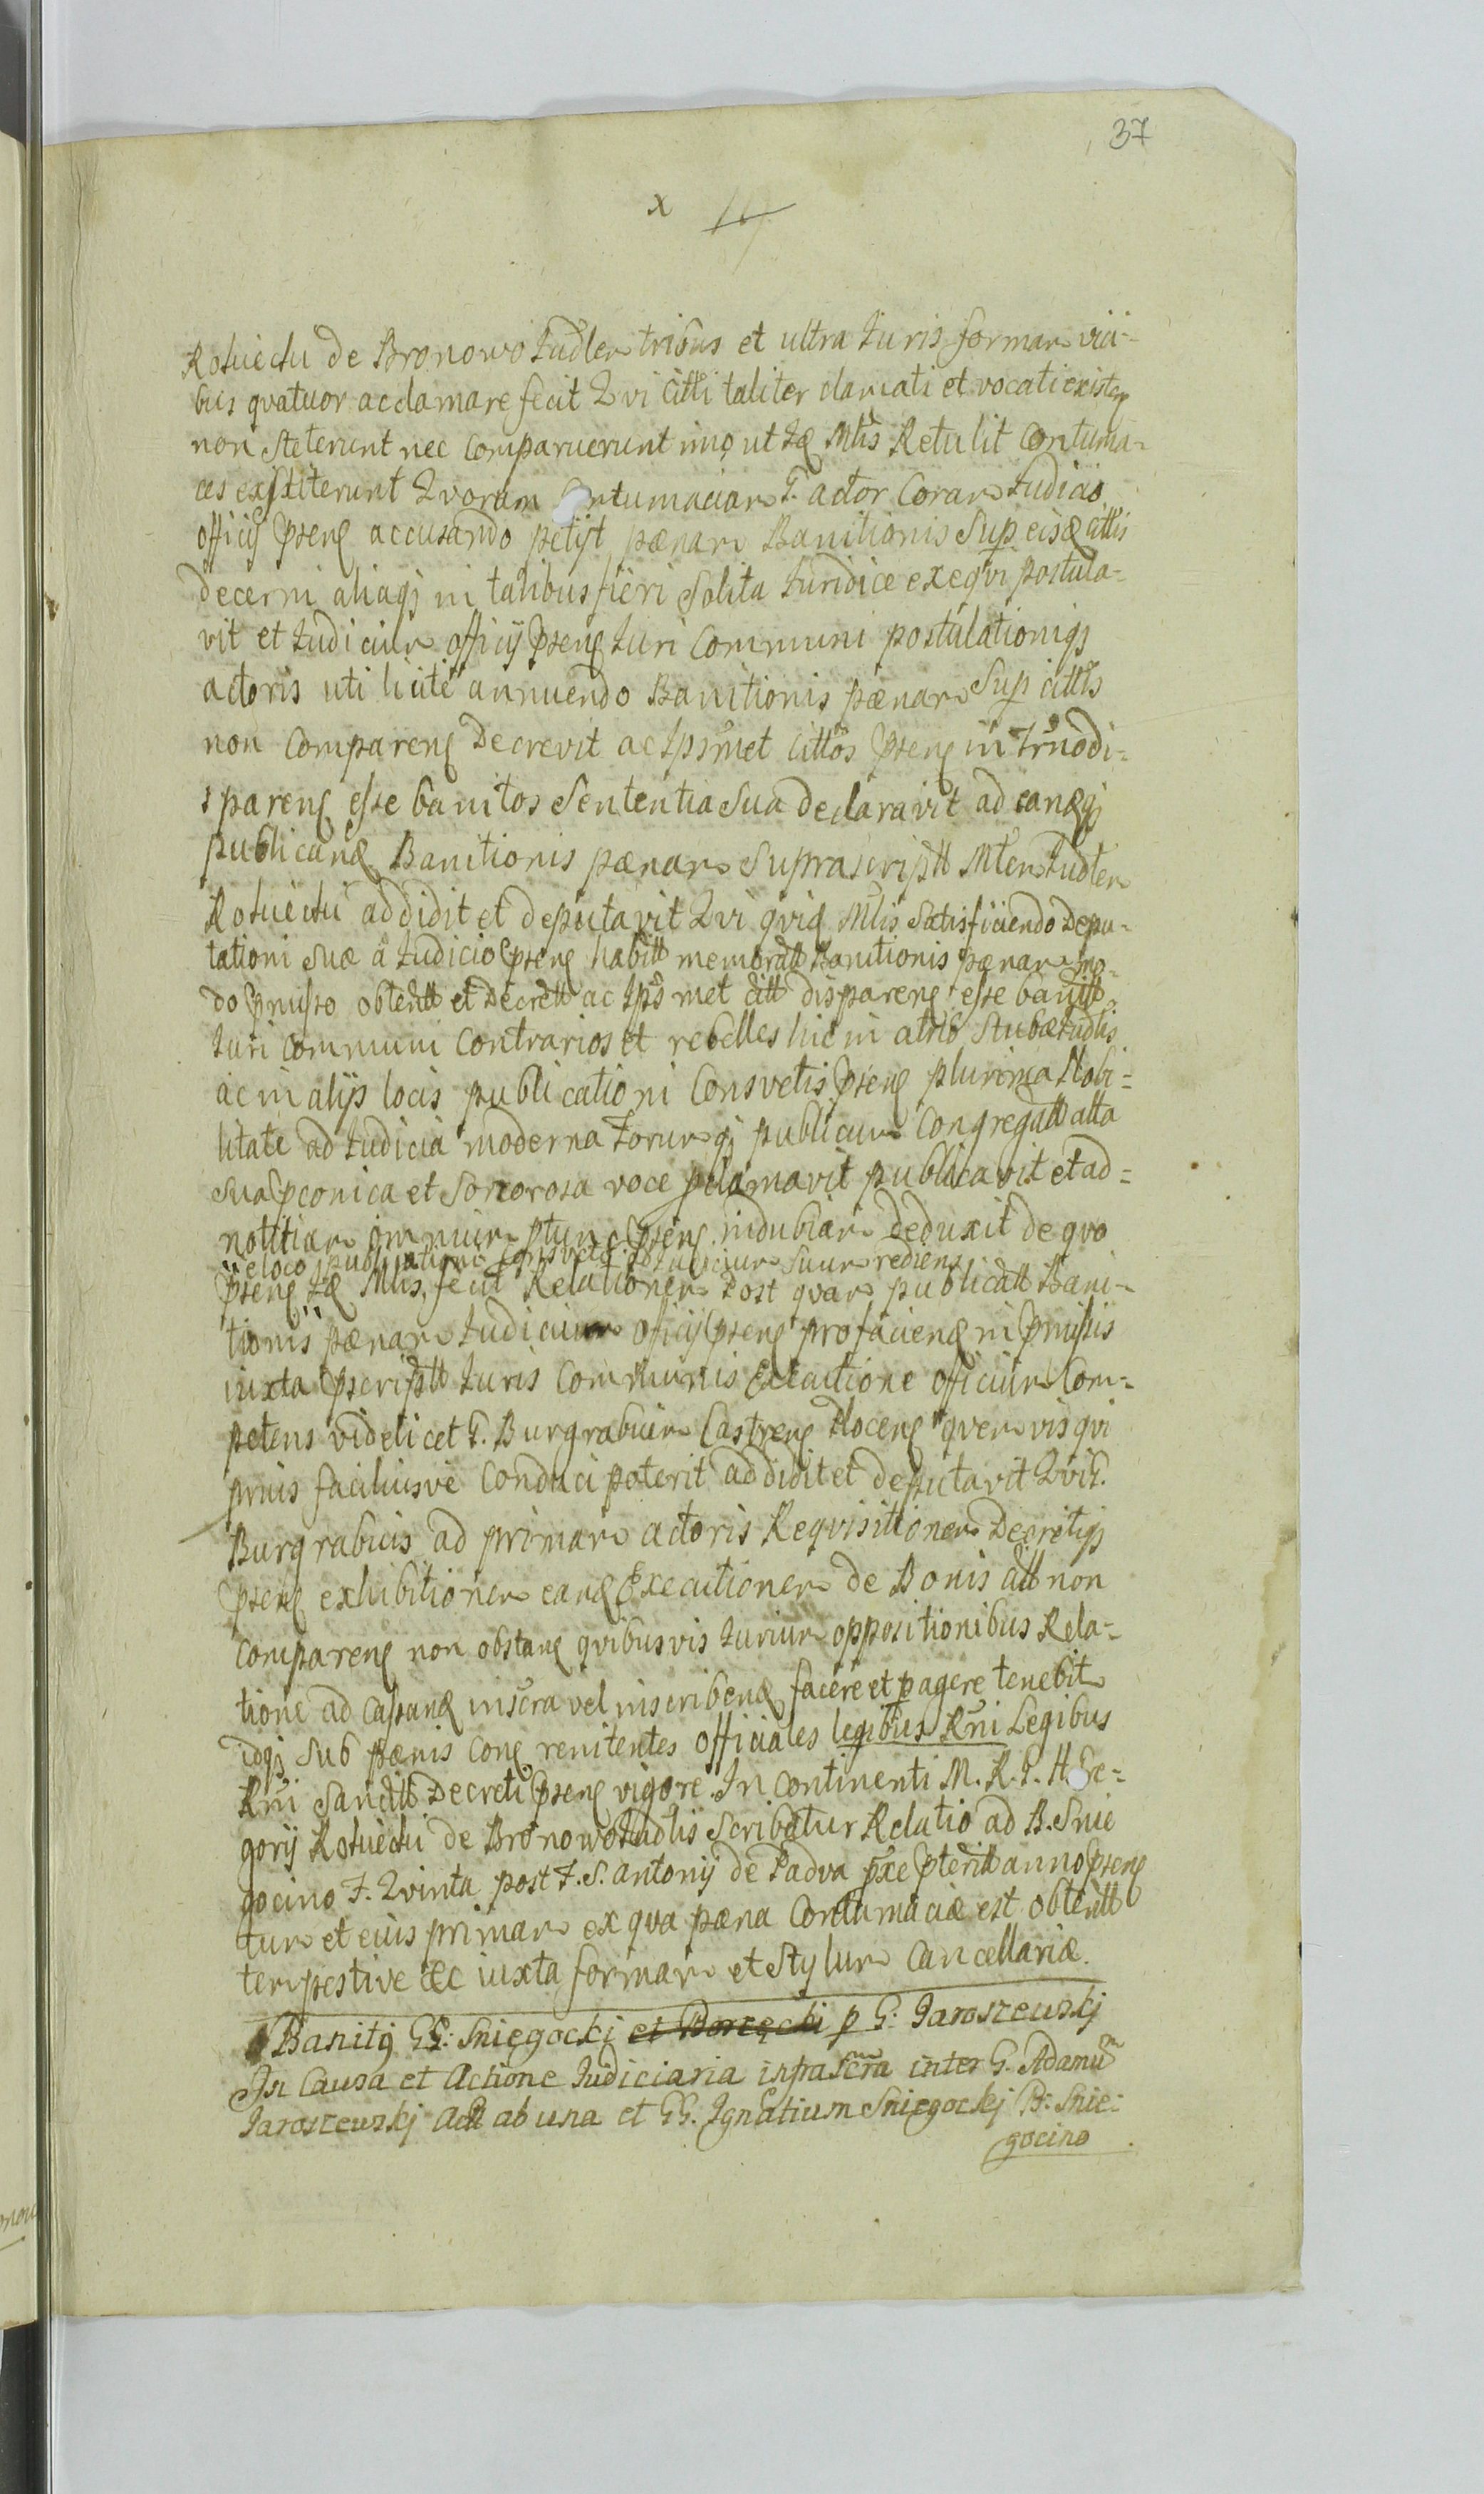 37
x
Rościechi de Bronowo Judlem tribus et ultra Juris formam vici-
bus qvatuor acclamare fecit Qvi citti taliter clamati et vocati existen
non steterunt nec comparuerunt imo ut id Mlis Retulit Contuma-
ces exstiterunt Qvorum Contumaciam G. actor coram Judicio
officij psens accusando petijt pænam Banitionis Sup eisd cittis
decerni aliaqz in talibus fieri solita Juridice exeqvi postula-
vit et Judicium officij psens Juri Communi postulationiqz
actoris uti licite annuendo Banitionis pænam Sup cittis
non Comparens Decrevit ac Ipsmet cittos psens in Trnodi-
s parens esse banitos Sententia Sua declaravit ad eandqz
publicand Banitionis pænam Suprascriptt Mlem Judlem
addidit et deputavit Qvi qvid Mlis Satisfaciendo Depu-
tationi suæ a Judicio psens habitt memoratt Banitionis pænam mo-
do pmisso obtentt et Decrett ac Ipsmet citt disparens esse banitt
Juri communi Contrarios et rebelles hic in atrio Stubæ Judlis
ac in alijs locis publicationi Consvetis psens plurima Nobi-
litate ad Judicia moderna Forumqz publicum Congregatt alta
sua pconica et Sonorosa voce pclamavit publicavit et ad
notitiam omnium ptunc psens indubiam deduxit de qvo
e loco publicationi Consveto ad Judicium suum rediens
psens id Mlis fecit Relationem Post qvam publicatt Bani-
tionis pænam Judicium officij psens pro faciend in pmissis
iuxta pscriptt Juris Communis Executione officium Com-
petens videlicet G. Burgrabium Castrens Plocens qvemvis qvi
prius faciliusve Conduci poterit addidit et deputavit Qvi G.
Burgrabius ad primam actoris Reqvisitionem Decretiqz
psens exhibitionem eand Executionem de Bonis citt non
comparens non obstans qvibusvis Jurium oppositionibus Rela-
tione ad Cassand inscra vel inscribend facere et pagere tenebit
idqz Sub pænis Con renitentes officiales legibus Rni Legibus
Rni Sancitt Decreti psens vigore. In continenti M. R. G. H. Gre-
gorij Rościechi de Bronowo Judlis Scribatur Relatio ad B. Snie
gocino F. Qvinta post F. S. Antonij de Padva pxe pteritt anno psens
tum et eius primam ex qva pæna Contumaciæ est obtentt
tempestive &c iuxta formam et Stylum Cancellariæ.
Banitq GG: Sniegocki et Borzęcki p G: Jaroszewskj
In Causa et Actione Judiciaria infrascra inter G. Adamum
Jaroszewskj Actt ab una et GG. Ignatium Sniegockj B: Snie-
gocino